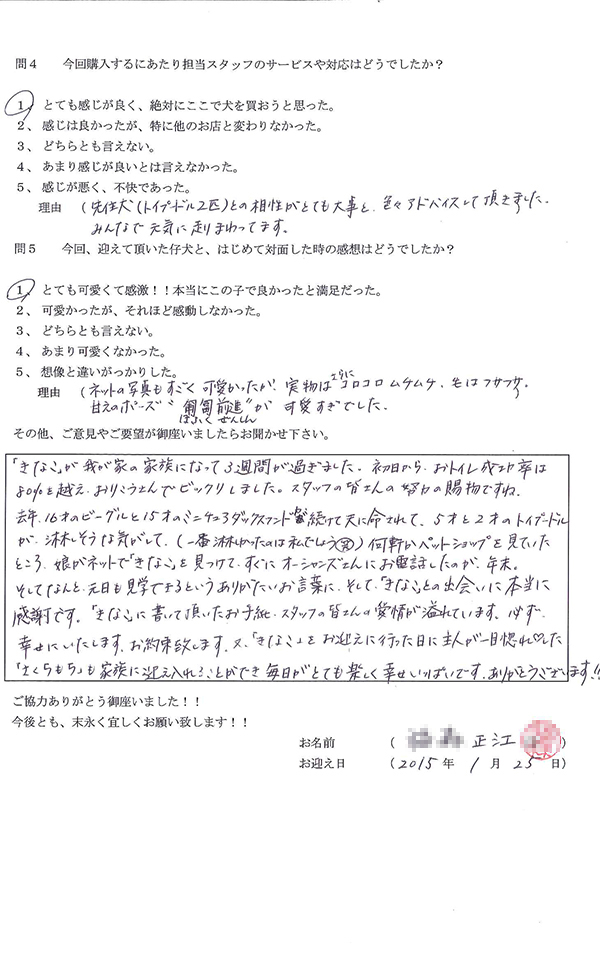 問4 今回購入するにあたり担当スタッフのサービスや対応はどうでしたか？
1、とても感じが良く、絶対にここで犬を買おうと思った。
2、感じは良かったが、特に他のお店と変わりなかった。
3、どちらとも言えない。
4、あまり感じが良いとは言えなかった。
5、感じが悪く、不快であった。
理由 (先住犬(トイプードル2匹)との相性がとても大事と、色々アドバイスして頂きました。
みんなで元気に走りまわってます。
問5 今回、迎えて頂いた仔犬と、はじめて対面した時の感想はどうでしたか？
1、とても可愛くて感激！！本当にこの子で良かったと満足だった。
2、可愛かったが、それほど感動しなかった。
3、どちらとも言えない。
4、あまり可愛くなかった。
5、想像と違いがっかりした。
理由 (ネットの写真もすごく可愛かったが、実物はさらにコロコロムチムチ、毛はフサフサ。
甘えのポーズ"匍匐前進"が可愛すぎでした。
ほふくぜんしん
その他、ご意見やご要望が御座いましたらお聞かせ下さい。
「きなこ」が我が家の家族になって3週間が過ぎました。初日から、おトイレ成功率は
80%を越え、おりこうさんでビックリしました。スタッフの皆さんの努力の賜物ですね。
去年、16才のビーグルと15才のミニチュアダックスフンドが続けて天に命されて、5才と2才のトイプードル
が、淋しそうな気がして、(一番淋しかったのは私でしょう笑)何軒かペットショップを見ていた
ところ、娘がネットで「きなこ」を見つけて、すぐにオーシャンズさんにお電話したのが、年末。
そしてなんと、元日も見学できるというありがたいお言葉に、そして、「きなこ」との出会いに本当に
感謝です。「きなこ」に書いて頂いたお手紙、スタッフの皆さんの愛情が溢れています。必ず、
幸せにいたします。お約束致します。又、「きなこ」をお迎えに行った日に主人が一目惚れ♡した
「さくらもち」も家族に迎え入れることができ毎日がとても楽しく幸せいっぱいです。ありがとうございます!!
ご協力ありがとう御座いました！！
今後とも、末永く宜しくお願い致します！！
お名前 ( 正江 )
お迎え日 (2015年 1月 25日)